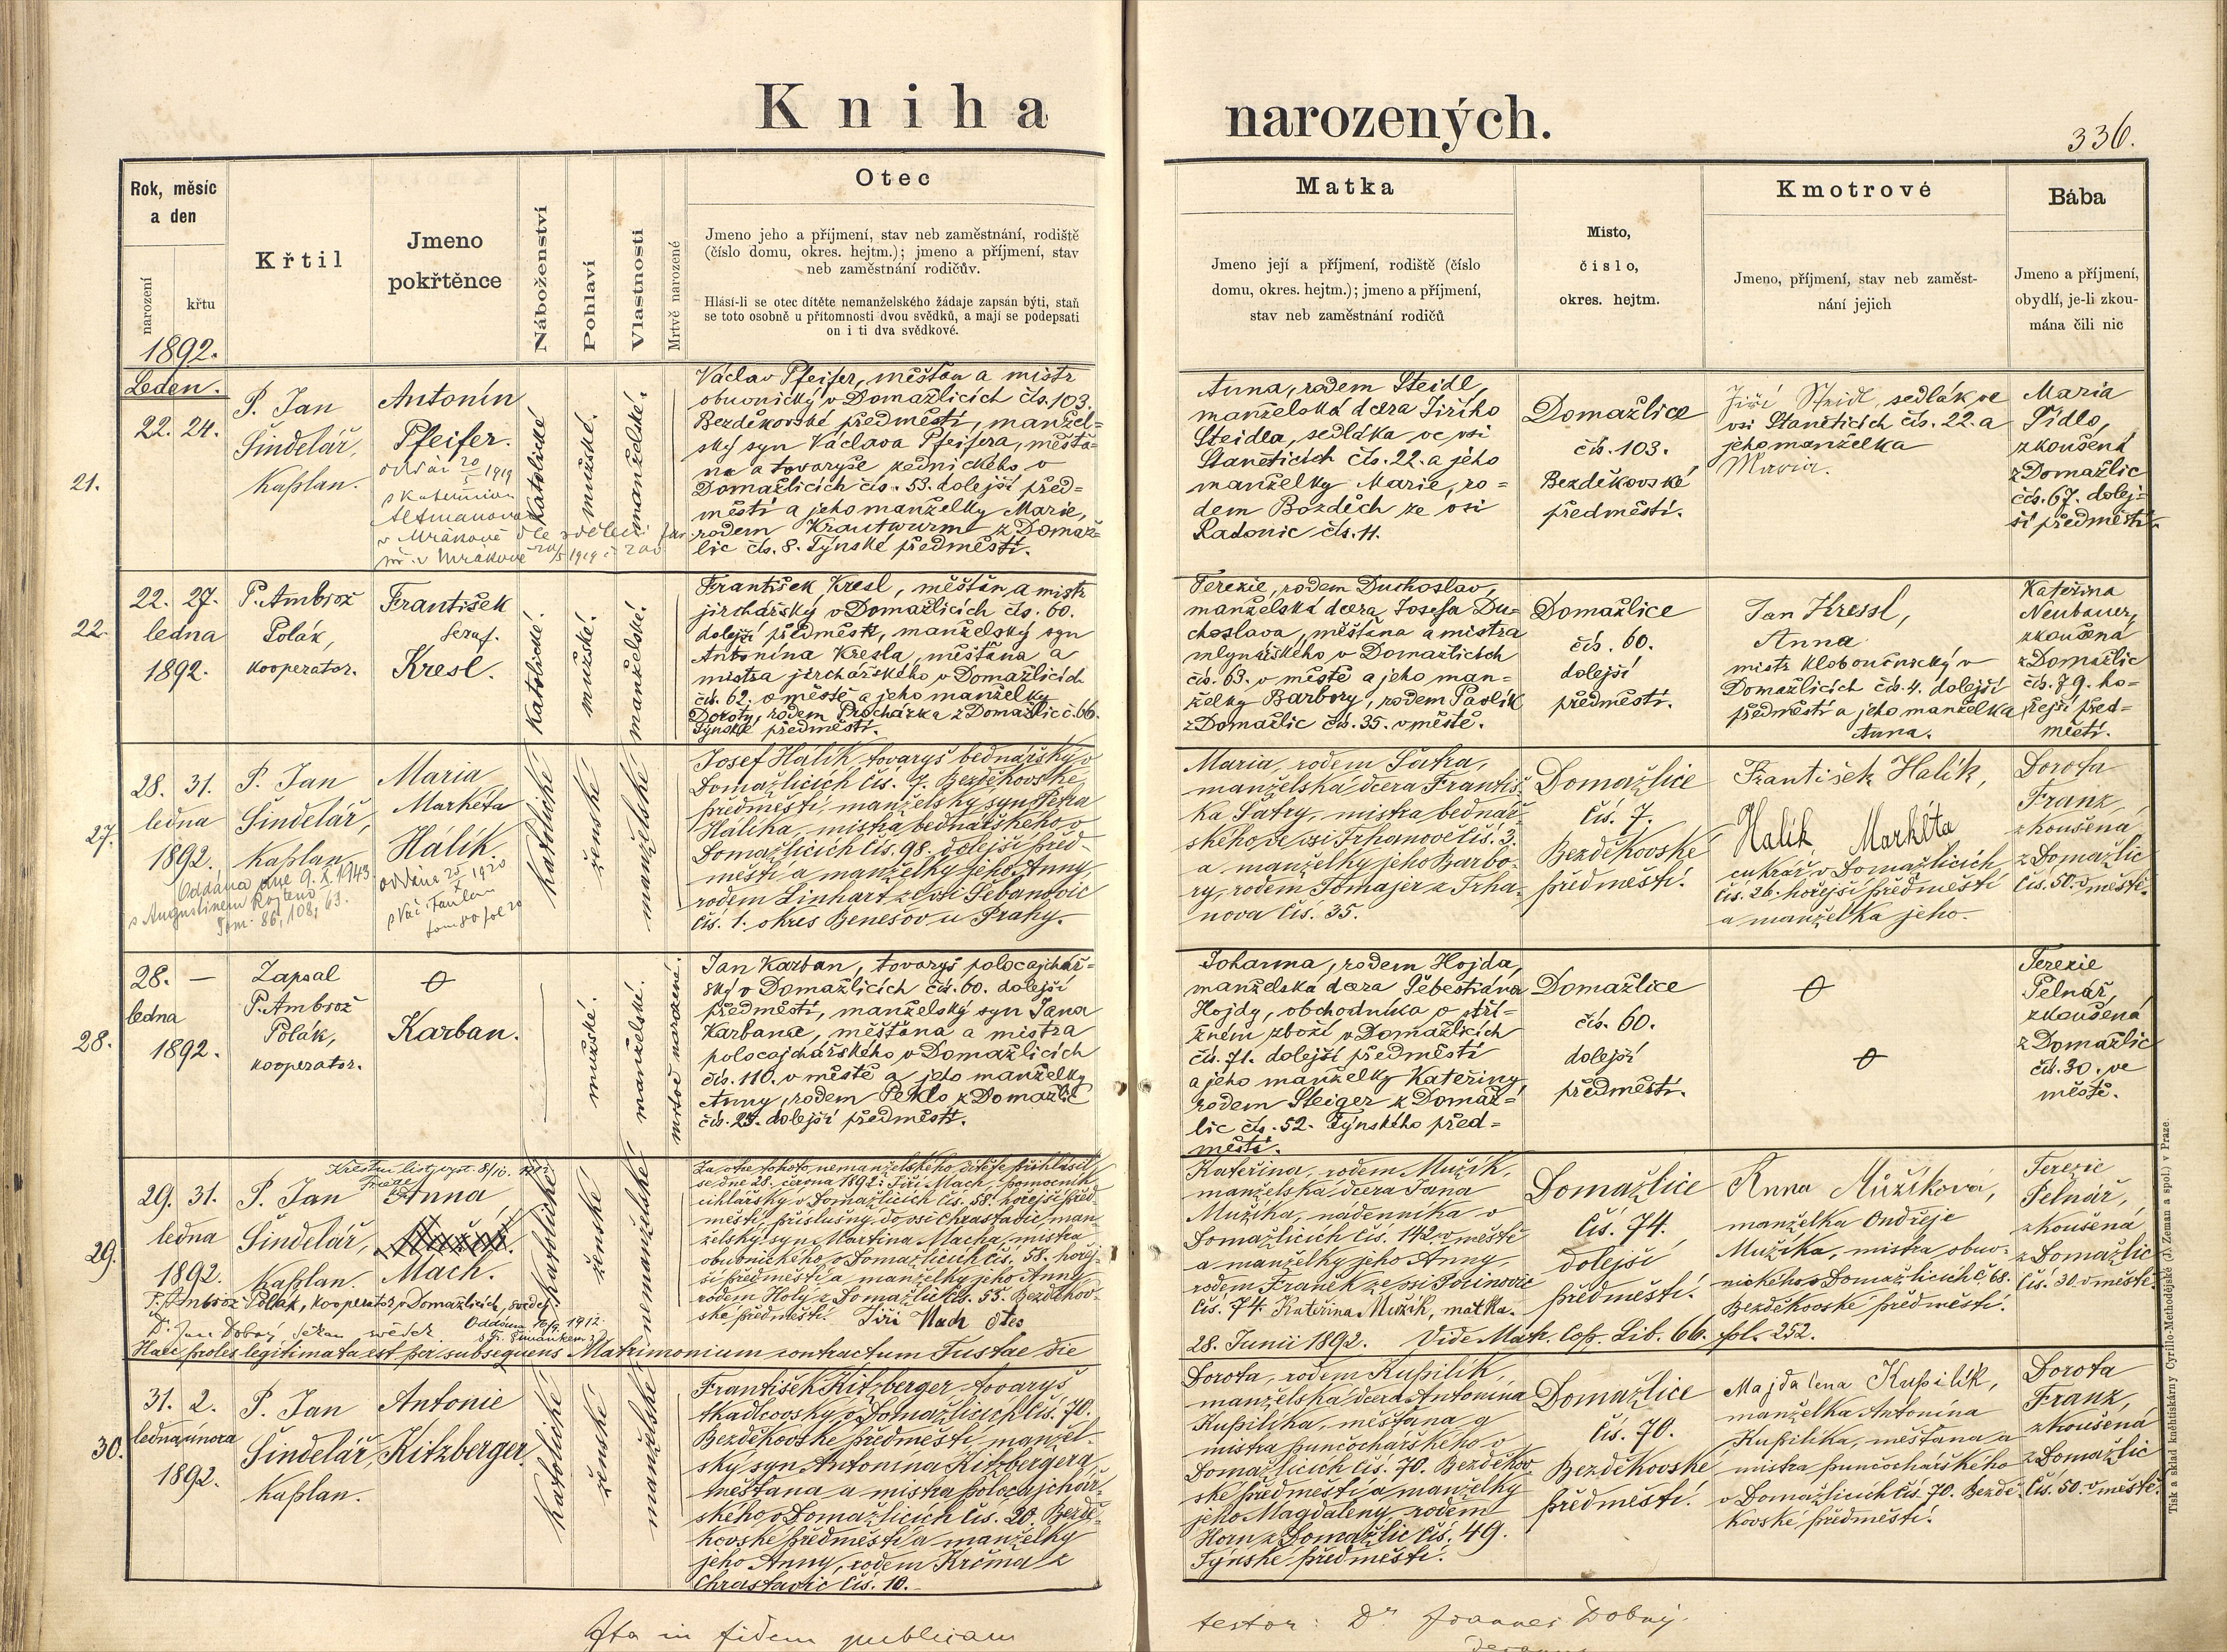 Kniha narozených.
336.
Rok, měsíc
a den
narození
křtu
1892.
Křtil
Jmeno
pokřtěnce
Náboženství
Pohlaví
Vlastnosti
Mrtvě narozené
Otec
Jmeno jeho a příjmení, stav neb zaměstnání, rodiště
(číslo domu, okres. hejtm.); jmeno a příjmení, stav
neb zaměstnání rodičův.
Hlásí-li se otec dítěte nemanželského žádaje zapsán býti, staň
se toto osobně u přítomnosti dvou svědků, a mají se podepsati
on i ti dva svědkové.
Matka
Jmeno její a příjmení, rodiště (číslo
domu, okres. hejtm.); jmeno a příjmení,
stav neb zaměstnání rodičů
Místo,
číslo,
okres. hejtm.
Kmotrové
Jmeno, příjmení, stav neb zaměst-
nání jejich
Bába
Jmeno a příjmení,
obydlí, je-li zkou-
mána čili nic
Leden.
21.
22. 24.
P. Jan
Šindelář,
Kaplan.
Antonín
Pfeifer.
1919
Altmanovou
v Mrákově
katolické
mužské.
manželské.
Václav Pfeifer, měšťan a mistr
obuvnický v Domažlicích čís. 103.
Bezděkovské předměstí, manžel-
ský syn Václava Pfeifera, měšťa-
na a tovaryše zednického v
Domažlicích čís. 53. dolejší před=
městí a jeho manželky Marie,
rodem Krautwurm z Domaž=
lic čís. 8. Týnské předměstí.
Anna, rodem Steidl,
manželská dcera Jiřího
Steidla, sedláka ve vsi
Staněticích čís. 22. a jeho
manželky Marie, ro=
dem Bozděch ze vsi
Radonic čís. 11.
Domažlice
čís. 103.
Bezděkovské
předměstí.
Jiří Steidl, sedlák ve
vsi Staněticích čís. 22. a
jeho manželka
Maria.
Maria
Tidlo,
zkoušená
z Domažlic
čís. 67. dolej=
ší předměstí.
22.
22. 27.
ledna
1892.
P. Ambrož
Polák,
kooperator.
František
Seraf.
Kresl.
katolické.
mužské.
manželské.
František Kresl, měšťan a mistr
jirchářský v Domažlicích čís. 60.
dolejší předměstí, manželský syn
Antonína Kresla, měšťana a
mistra jirchářského v Domažlicích
čís. 62. v městě a jeho manželky
Doroty, rodem Procházka z Domažlic č. 66.
Týnské předměstí.
Terezie, rodem Duchoslav,
manželská dcera Josefa Du=
choslava, měšťana a mistra
mlynářského v Domažlicích
čís. 63. v městě a jeho man=
želky Barbory, rodem Pavlík
z Domažlic čís. 35. v městě.
Domažlice
čís. 60.
dolejší
předměstí.
Jan Kressl,
Anna
mistr kloboučnický v
Domažlicích čís. 4. dolejší
předměstí a jeho manželka
Anna.
Kateřina
Neubauer,
zkoušená
z Domažlic
čís. 79. ho=
řejší před=
městí.
27.
28. 31.
ledna
1892.
P. Jan
Šindelář,
Kaplan.
Oddána dne 9. X. 1943
s Augustinem
Tom. 86, 108, 63.
Maria
Markéta
Hálík
1920
katolické
ženské
manželské
Josef Hálík tovaryš bednářský v
Domažlicích čís. 7. Bezděkovské
předměstí, manželský syn Petra
Hálíka, mistra bednářského v
Domažlicích čís. 98. dolejší před-
městí a manželky jeho Anny,
rodem Linhart ze vsi Šebanovic
čís. 1. okres Benešov u Prahy.
Maria, rodem Šatra,
manželská dcera Františ-
ka Šatry, mistra bednář-
ského ve vsi Trhanově čís. 3.
a manželky jeho Barbo-
ry, rodem Tomajer z Trha-
nova čís. 35.
Domažlice
čís. 7.
Bezděkovské
předměstí.
František Halík,
Halík Markéta
cukrář v Domažlicích
čís. 26. hořejší předměstí
a manželka jeho.
Dorota
Franz,
zkoušená
z Domažlic
čís. 50. v městě.
28.
28. —
ledna
1892.
Zapsal
P. Ambrož
Polák,
kooperator.
Karban.
mužské.
manželské.
mrtvě narozené.
Jan Karban, tovaryš polocajchář=
ský v Domažlicích čís. 60. dolejší
předměstí, manželský syn Jana
Karbana, měšťana a mistra
polocajchářského v Domažlicích
čís. 110. v městě a jeho manželky
Anny, rodem Peklo z Domažlic
čís. 25. dolejší předměstí.
Johanna, rodem Hojda,
manželská dcera Šebestiána
Hojdy, obchodníka v stři=
žném zboží v Domažlicích
čís. 71. dolejší předměstí
a jeho manželky Kateřiny,
rodem Steiger z Domaž=
lic čís. 52. Týnského před=
městí.
Domažlice
čís. 60.
dolejší
předměstí.
Terezie
Pelnář,
zkoušená
z Domažlic
čís. 30. ve
městě.
29.
29. 31.
ledna
1892.
P. Jan
Šindelář,
Kaplan.
Křestní list vyst. 8/10.
Anna
Mach.
P. Ambrož Polák, kooperator v Domažlicích, svědek
Dr. Jan Dobrý, děkan svědek.
Oddána 1912
katolické
ženské
nemanželské
Za otce tohoto nemanželského dítěte přihlásil
se dne 28. června 1892. Jiří Mach, pomocník
cihlářský v Domažlicích čís. 58. hořejší před-
městí, příslušný do vsi Chrastavic, man-
želský syn Martina Macha, mistra
obuvnického v Domažlicích čís. 58. hořej-
ší předměstí a manželky jeho Anny
rodem Holý z Domažlic čís. 55. Bezděkov-
ské předměstí. Jiří Mach Otec
Kateřina, rodem Mužík,
manželská dcera Jana
Mužíka, nádenníka v
Domažlicích čís. 142. v městě
a manželky jeho Anny,
rodem Franěk ze vsi Pocinovic
čís. 74. Kateřina Mužík, matka.
Domažlice
čís. 74.
dolejší
předměstí.
Anna Můžíková,
manželka Ondřeje
Mužíka, mistra obuv-
nického v Domažlicích č. 68.
Bezděkovské předměstí.
Terezie
Pelnář,
zkoušená
z Domažlic
čís. 30. v městě.
Haec proles legitimata est per subsequens Matrimonium contractum Tustae die
28. Junii 1892. Vide Matr. Cop. Lib. 66. fol. 252.
30.
31. 2.
ledna února
1892.
P. Jan
Šindelář
Kaplan.
Antonie
Kitzberger.
katolické
ženské
manželské
František Kitzberger tovaryš
tkadlcovský v Domažlicích čís. 70.
Bezděkovské předměstí, manžel-
ský syn Antonína Kitzbergera,
měšťana a mistra polocajchář-
ského v Domažlicích čís. 20. Bezdě-
kovské předměstí a manželky
jeho Anny, rodem Krčma z
Chrastavic čís. 10.
Dorota, rodem Kupilík,
manželská dcera Antonína
Kupilíka, měšťana a
mistra punčochářského v
Domažlicích čís. 70. Bezděkov-
ské předměstí a manželky
jeho Magdaleny rodem
Horn z Domažlic čís. 49.
Týnské předměstí.
Domažlice
čís. 70.
Bezděkovské
předměstí.
Majdalena Kupilík,
manželka Antonína
Kupilíka, měšťana a
mistra punčochářského
v Domažlicích čís. 70. Bezdě-
kovské předměstí.
Dorota
Franz,
zkoušená
z Domažlic
čís. 50. v městě.
Ita in fidem publicam
testor: Dr Joannes Dobrý.
Tisk a sklad knihtiskárny Cyrillo-Methodějské (J. Zeman a spol.) v Praze.